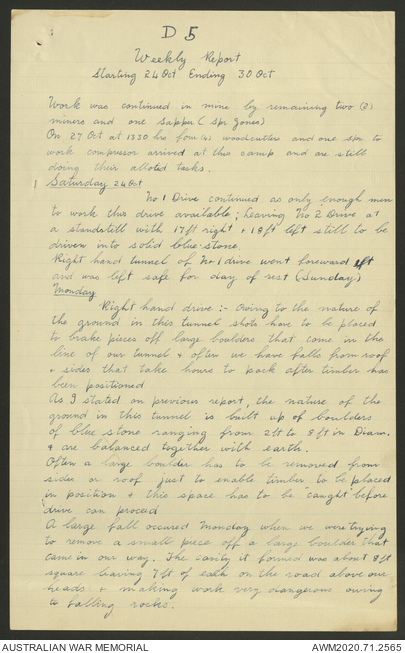 D 5
Weekly Report
Starting 24 Oct Ending 30 Oct
Work was continued in mine by remaining two (2)
miners and one sapper (Spr Jones)
On 27 Oct at 1330 hrs four (4) woodcutters and one spr to
work compressor arrived at this camp and are still
doing their alloted tasks.
Saturday 24 Oct
No 1 Drive continued as only enough men
to work this drive available; Leaving No 2 Drive at
a standstill with 17ft right + 18ft left still to be
driven into solid blue stone.
Right hand tunnel of No 1 drive went foreward ft
and was left safe for day of rest (Sunday)
Monday
Right hand drive :- Owing to the nature of
the ground in this tunnel shots have to be placed
to brake pieces off large boulders that come in the
line of our tunnel & often we have falls from roof
& sides that take hours to pack after timber has
been positioned
As I stated on previous report, the nature of the
ground in this tunnel is built up of boulders
of blue stone ranging from 2ft to 8ft in Diam.
& are balanced together with earth.
Often a large boulder has to be removed from
sides or roof just to enable timber to be placed
in position & this space has to be caught before
drive can proceed
A large fall occured Monday when we were trying
to remove a small piece off a large boulder that
came in our way. The cavity it formed was about 8ft
square leaving 7ft of earth on the road above our
heads & making work very dangerous owing
to falling rocks.
AUSTRALIAN WAR MEMORIAL
AWM2020.71.2565